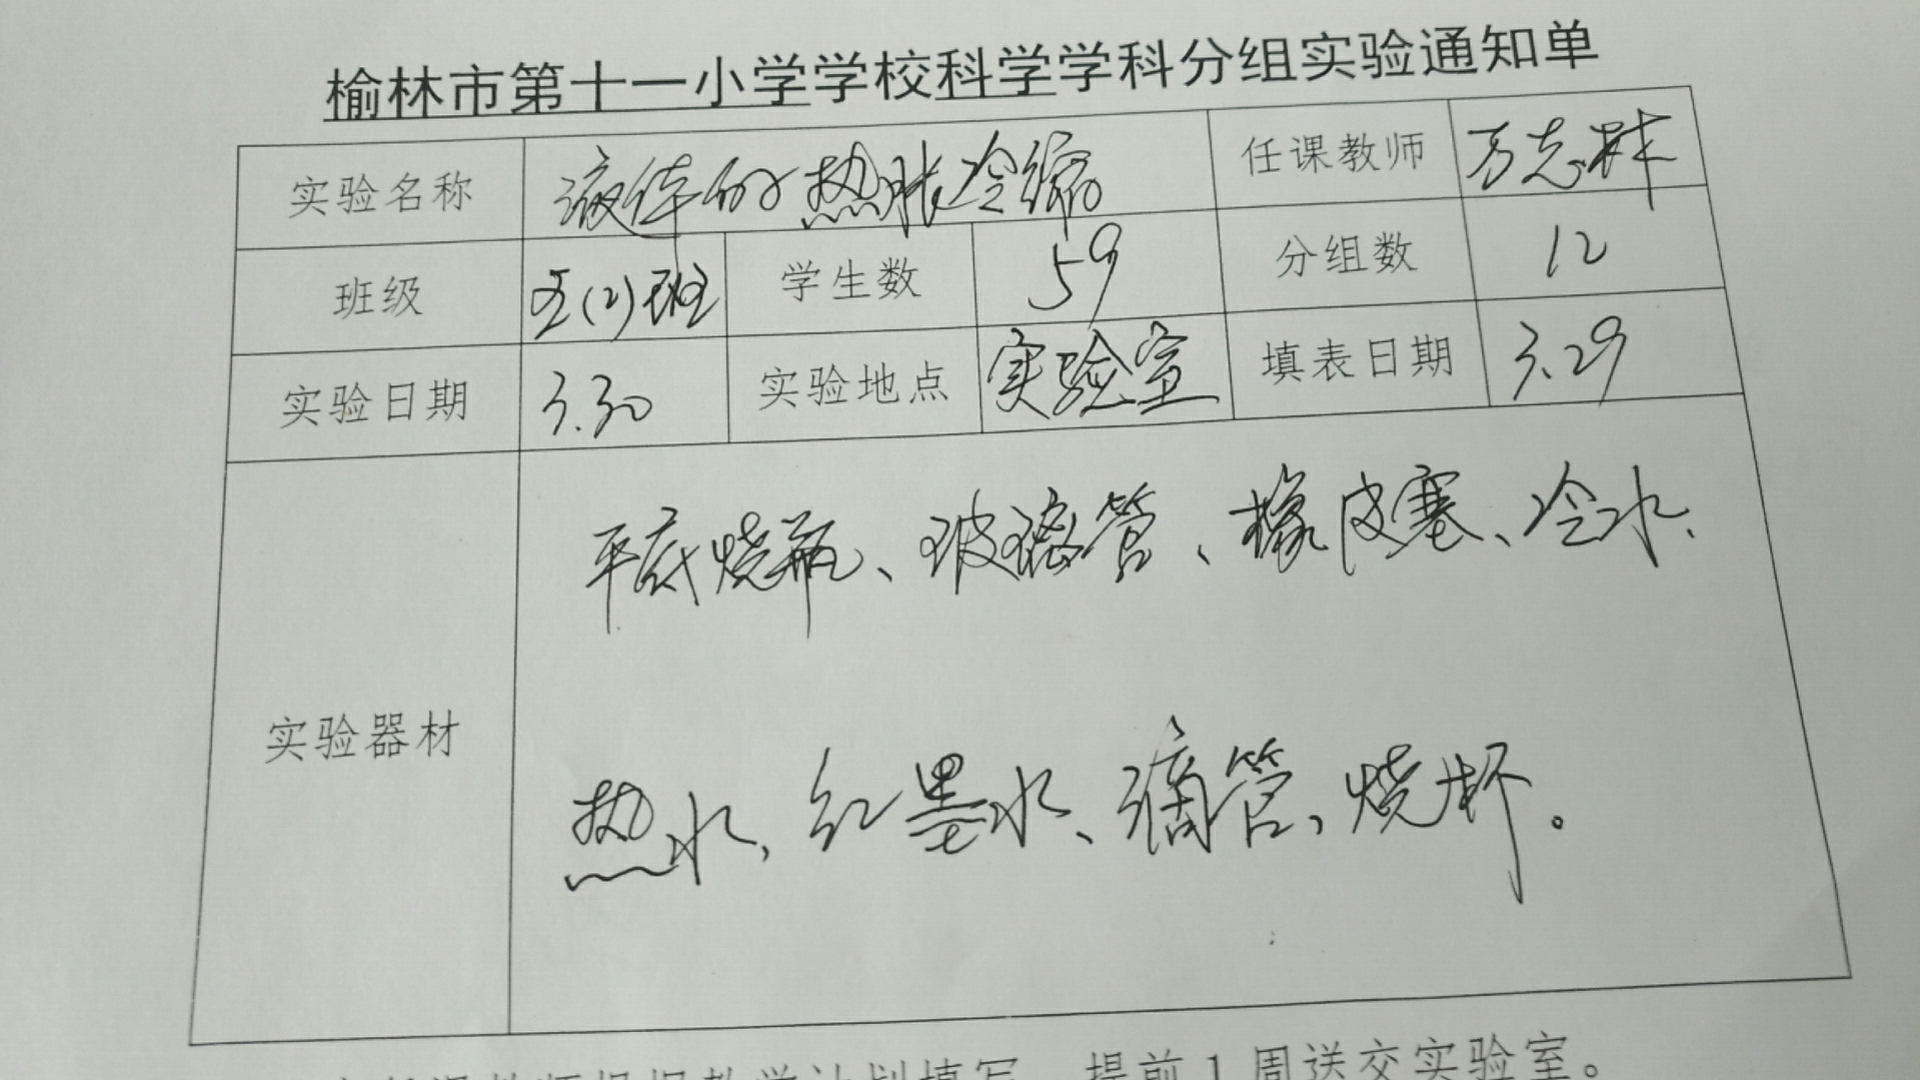 榆林市第十一小学学校科学学科分组实验通知单
实验名称 液体的热胀冷缩 任课教师 万志林
班级 五(2)班 学生数 59 分组数 12
实验日期 3.30 实验地点 实验室 填表日期 3.29
平底烧瓶、玻璃管、橡皮塞、冷水、
实验器材
热水、红墨水、滴管、烧杯。
任课教师根据教学计划填写,提前1周送交实验室。